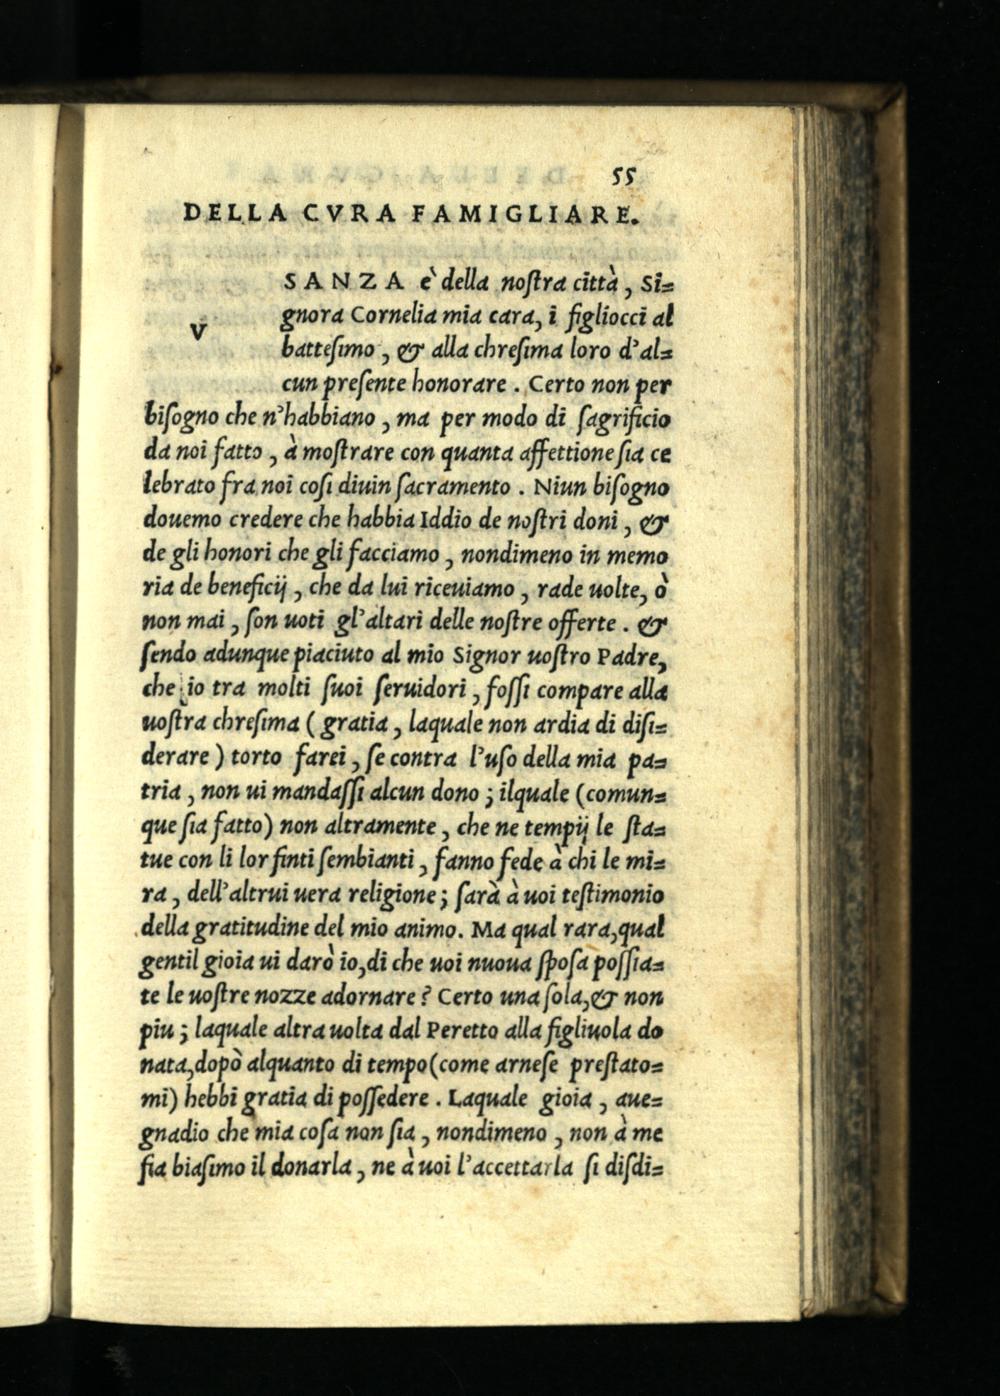 55
DELLA CVRA FAMIGLIARE.
V SANZA è della noſtra città, Si=
gnora Cornelia mia cara, i figliocci al
batteſimo, & alla chreſima loro d'al=
cun preſente honorare. Certo non per
biſogno che n'habbiano, ma per modo di ſagrificio
da noi fatto, à moſtrare con quanta affettione ſia ce
lebrato fra noi coſi diuin ſacramento. Niun biſogno
douemo credere che habbia Iddio de noſtri doni, &
de gli honori che gli facciamo, nondimeno in memo
ria de beneficij, che da lui riceuiamo, rade uolte, ò
non mai, ſon uoti gl'altari delle noſtre offerte. &
ſendo adunque piaciuto al mio Signor uoſtro Padre,
che io tra molti ſuoi ſeruidori, foſſi compare alla
uoſtra chreſima (gratia, laquale non ardia di diſi=
derare) torto farei, ſe contra l'uſo della mia pa=
tria, non ui mandaſſi alcun dono; ilquale (comun=
que ſia fatto) non altramente, che ne tempij le ſta=
tue con li lor finti ſembianti, fanno fede à chi le mi=
ra, dell'altrui uera religione; ſarà à uoi teſtimonio
della gratitudine del mio animo. Ma qual rara, qual
gentil gioia ui darò io, di che uoi nuoua ſpoſa poſſia=
te le uoſtre nozze adornare? Certo una ſola, & non
piu; laquale altra uolta dal Peretto alla figliuola do
nata, dopò alquanto di tempo (come arneſe preſtato=
mi) hebbi gratia di poſſedere. Laquale gioia, aue=
gnadio che mia coſa non ſia, nondimeno, non à me
fia biaſimo il donarla, ne à uoi l'accettarla ſi diſdi=